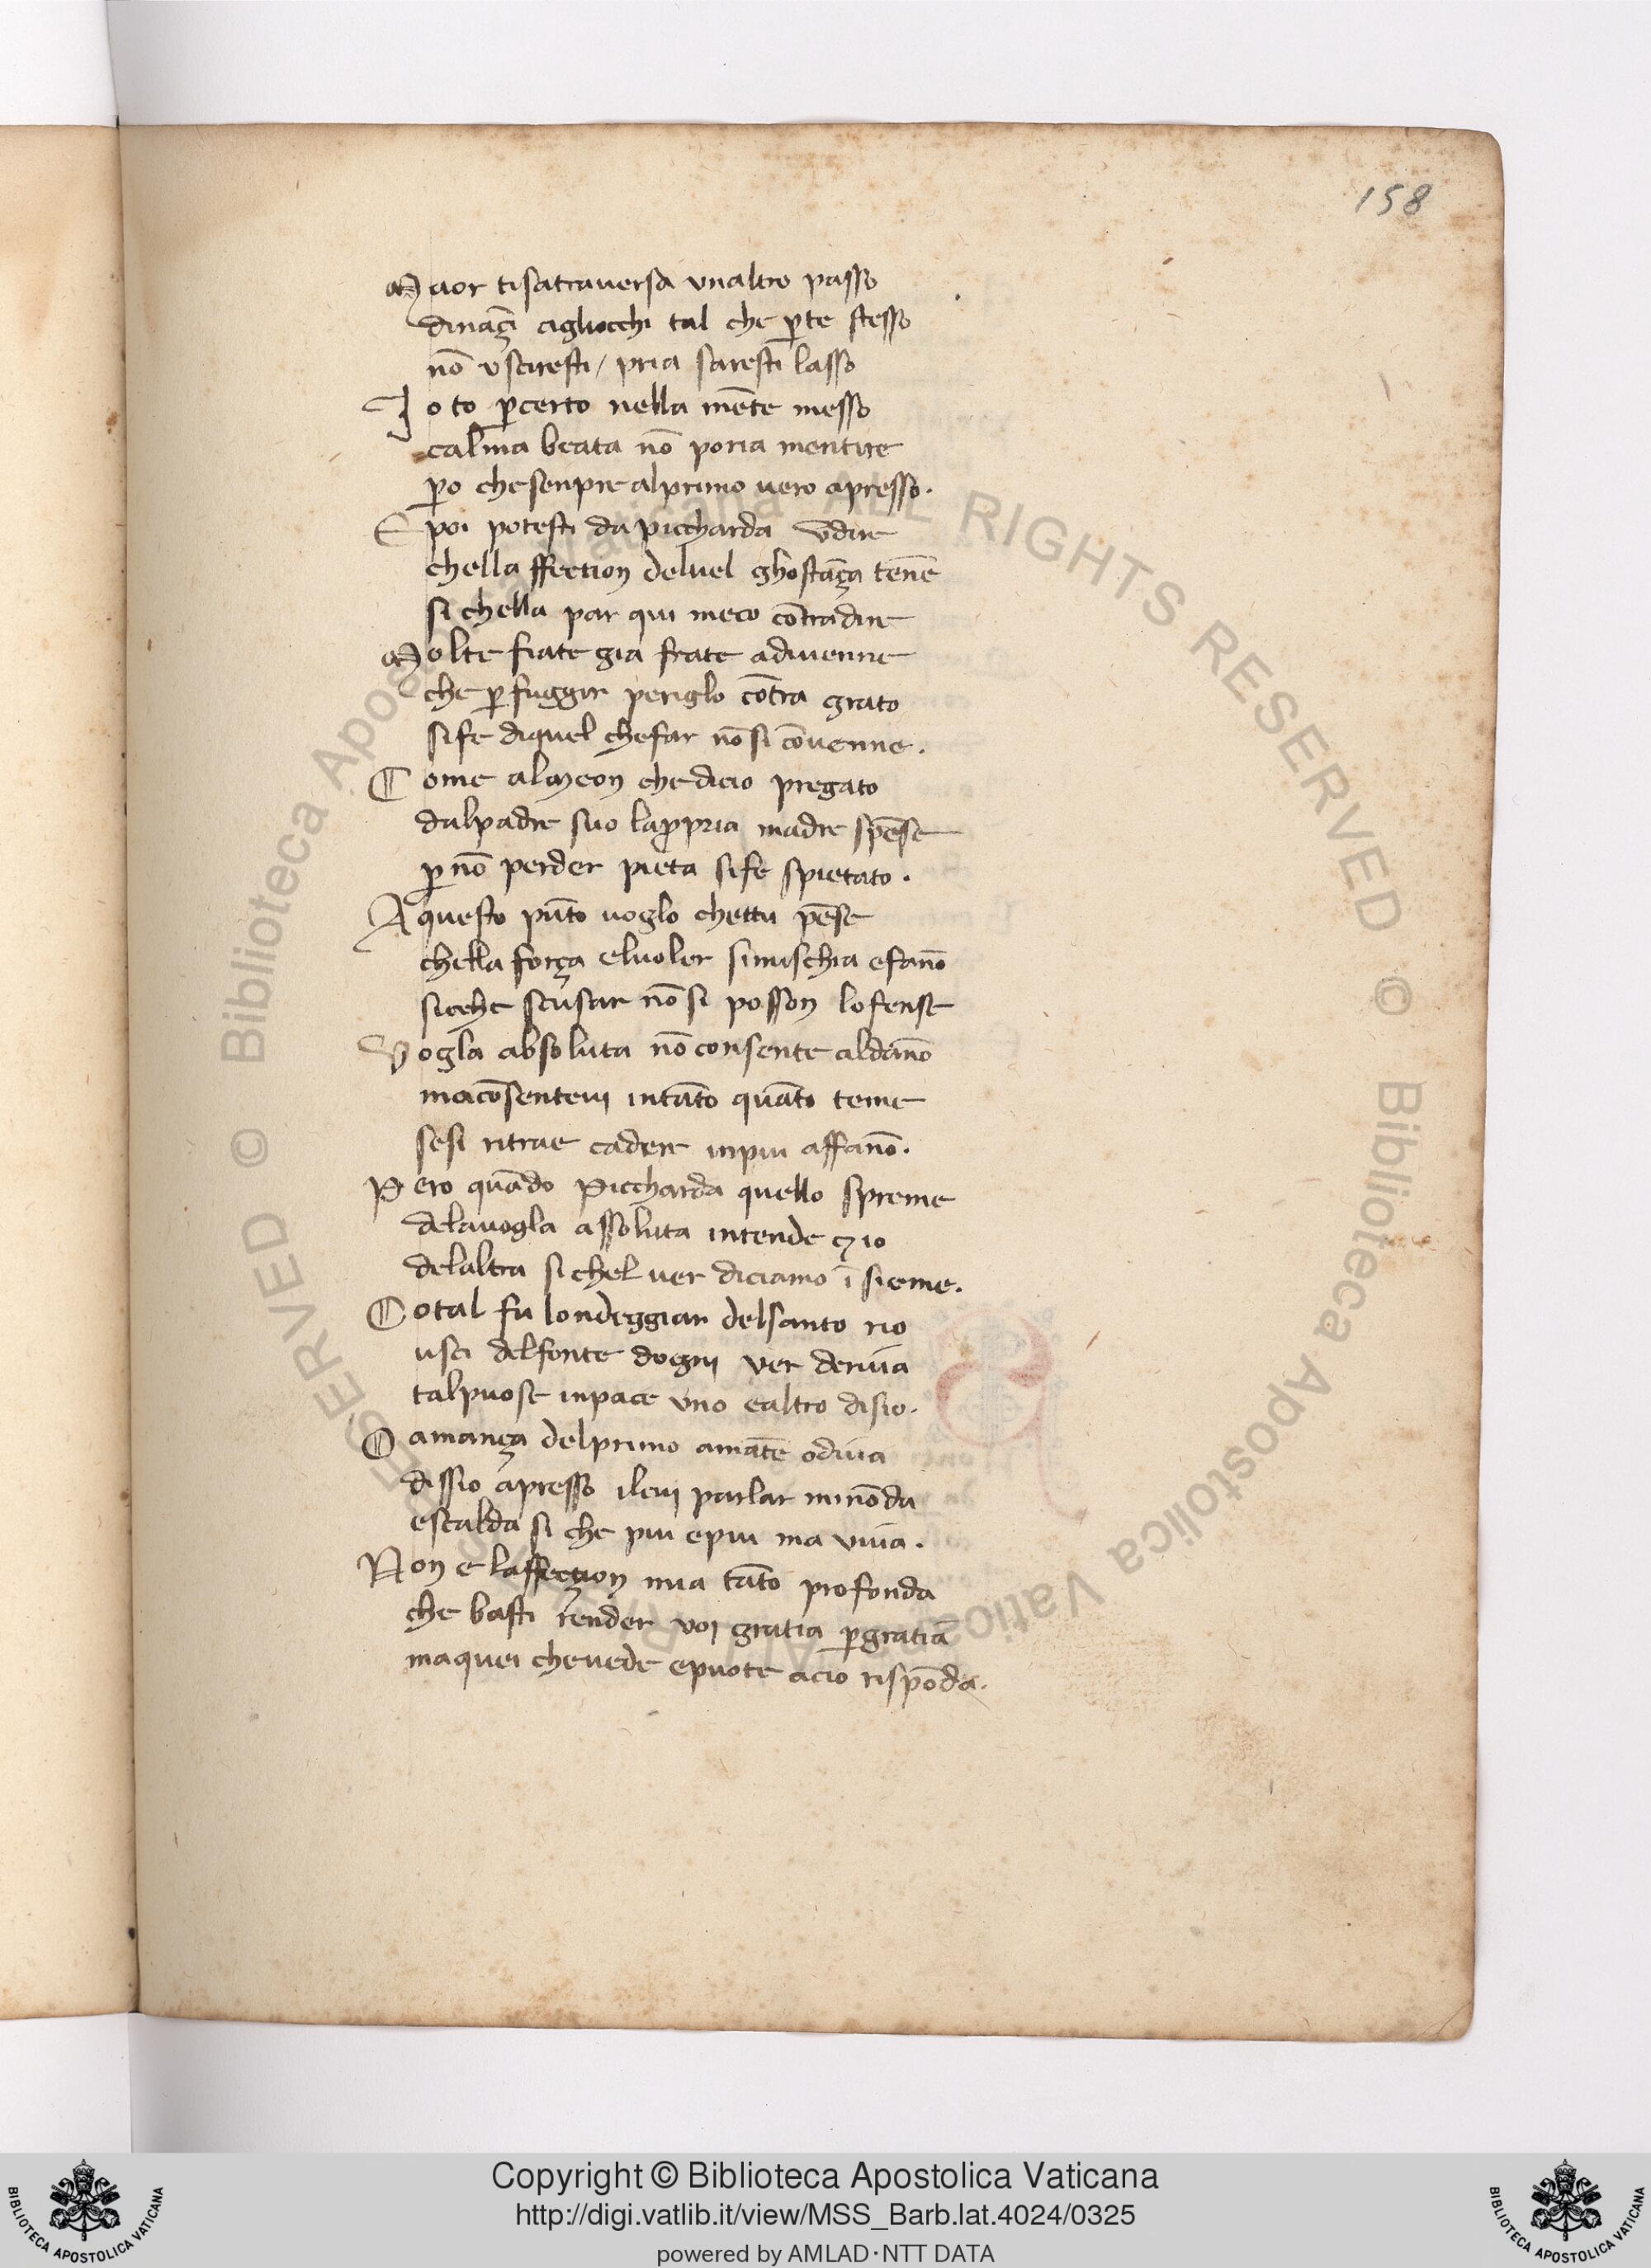 158
Maor tisatrauersa vnaltro passo
dināçi agliocchi tal che ꝑte stesso
nō vsciresti / pria saresti lasso
Io to ꝑcerto nella mēte messo
calma beata nō poria mentire
ꝑo chesenpre alprimo uero apresso.
E poi potesti da piccharda vdire
chella ffection deluel ghostāça tenē
si chella par qui meco cōtradire
Molte fiate gia frate aduienne
che ꝑ fuggir periglo cōtra grato
sife diquel chefar nō si cōuenne.
Come almeon chedicio pregato
dalpadre suo laꝓpria madre spēse
ꝑ nō perder pieta sife spietato.
A questo pūto uoglo chettu pēse
chella força eluoler simischia efanō
sicche scusar nō si posson lofense
Vogla absoluta nō consente aldanō
macōsenteui intāto quāto teme
sesi ritrae cadere inpiu affanō.
Pero quādo Piccharda quello spreme
delauogla assoluta intende ⁊ io
delaltra si chel uer diciamo ī sieme.
Cotal fu londeggiar delsanto rio
usci delfonte dogni ver deriua
talpuose inpace vno ealtro disio.
O amança delprimo amāte odiua
dissio apresso ilcui parlar minōda
escalda si che piu epiu ma viua.
Non e laffeçion mia tāto profonda
che basti render voi gratia ꝑgratia
maquei cheuede epuote acio rispōda.
© Biblioteca Apostolica Vaticana ALL RIGHTS RESERVED © Biblioteca Apostolica Vaticana ALL RIGHTS RESERVED
Copyright © Biblioteca Apostolica Vaticana
http://digi.vatlib.it/view/MSS_Barb.lat.4024/0325
powered by AMLAD·NTT DATA
BIBLIOTECA APOSTOLICA VATICANA
BIBLIOTECA APOSTOLICA VATICANA